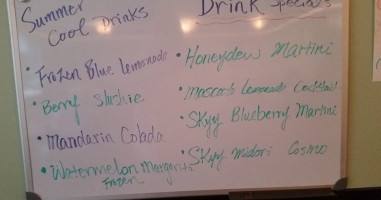 Summer
Cool Drinks
• Frozen Blue Lemonade
• Berry Slushie
• Mandarin Colada
• Watermelon Margarita
Frozen
Drink Specials
• Honeydew Martini
• Lemonade Cocktail
• Skyy Blueberry Martini
• Skyy Midori Cosmo